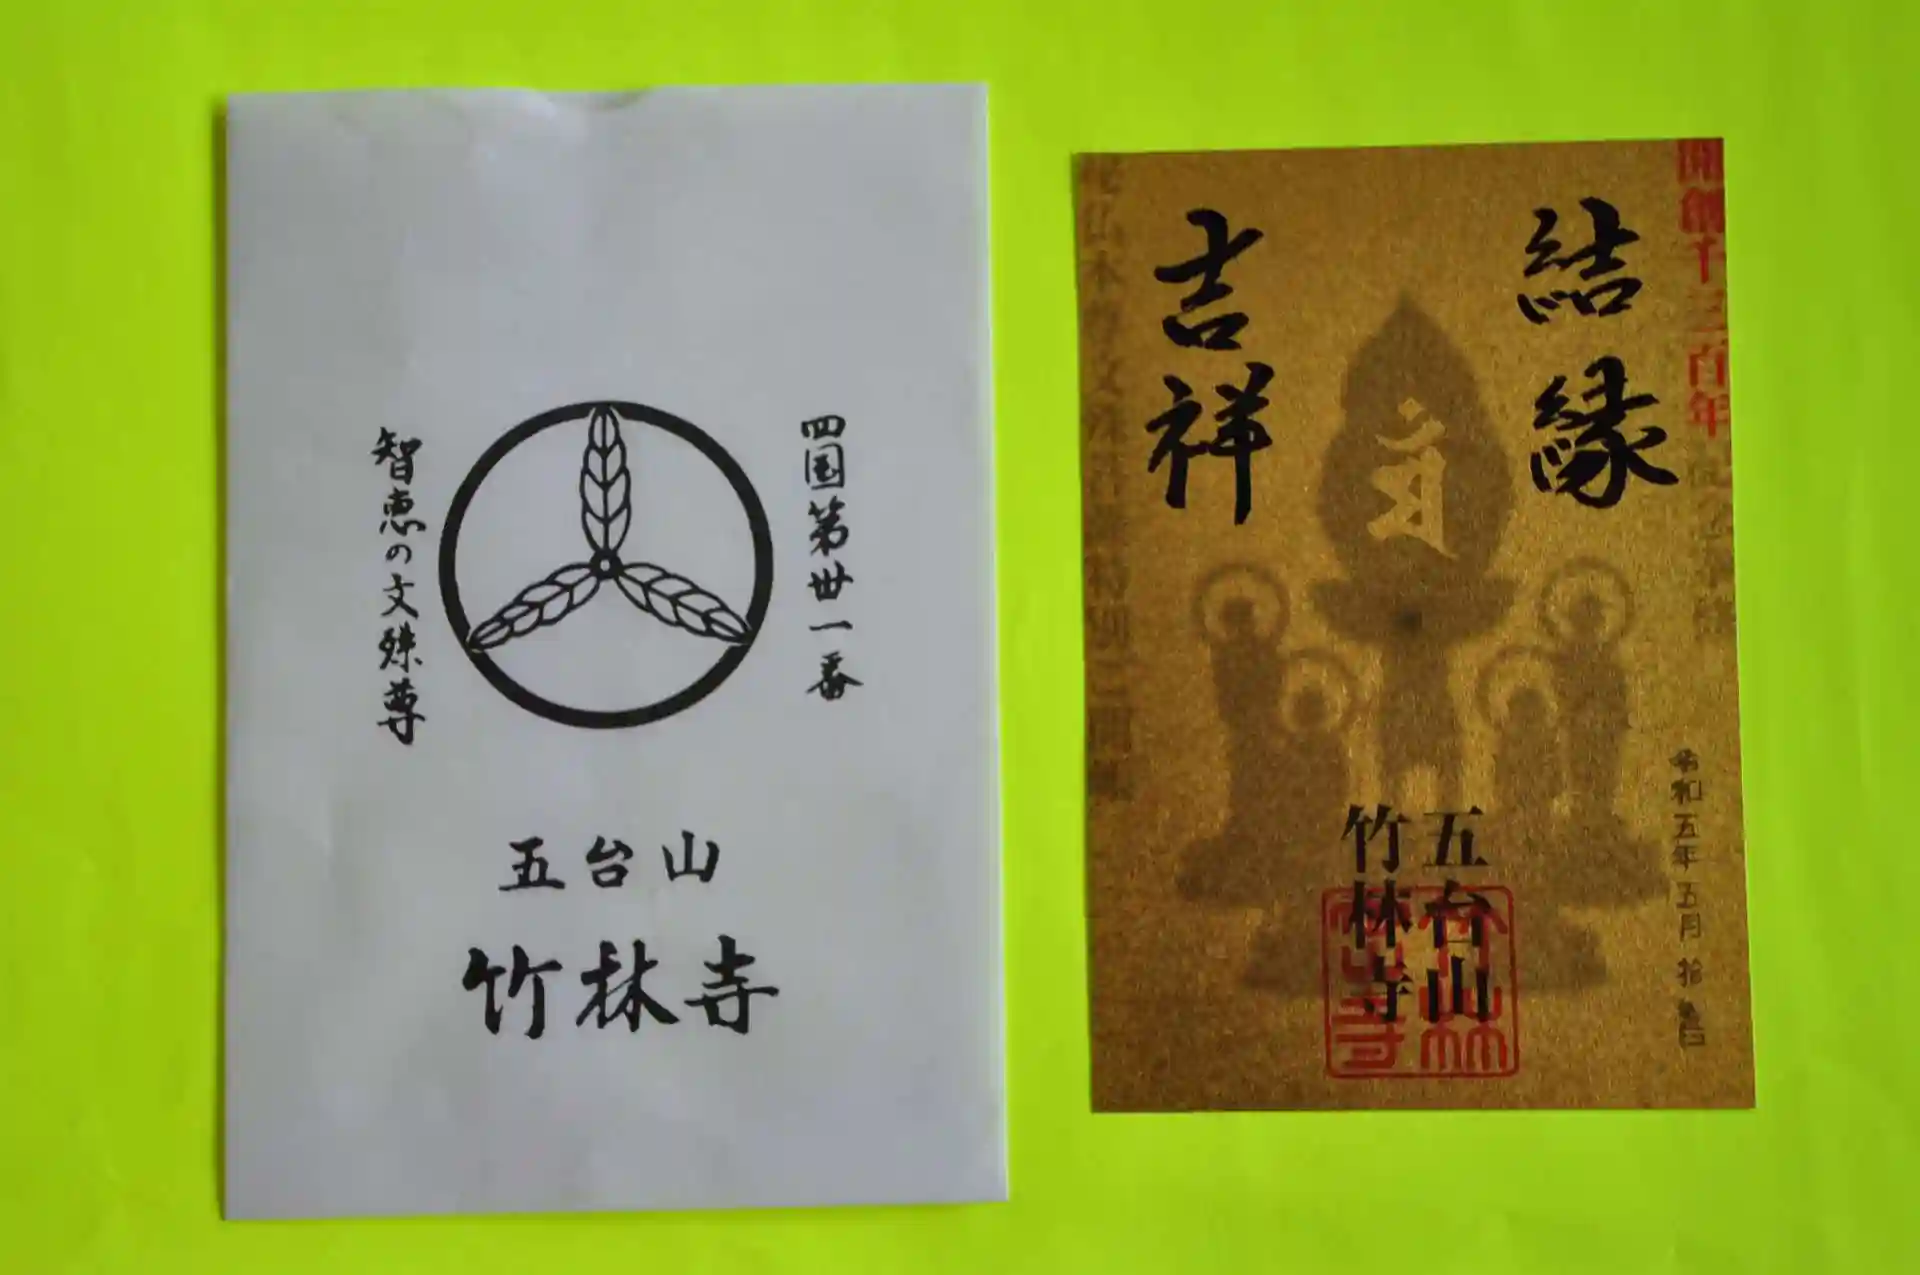 四国第卅一番
智恵の文殊尊
五台山
竹林寺
開創千三百年
結縁
吉祥
五台山
竹林寺
令和五年五月拾
竹林
寺